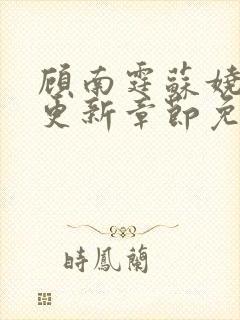 顾南霆蘇嬈
更新章節免
時鳳蘭